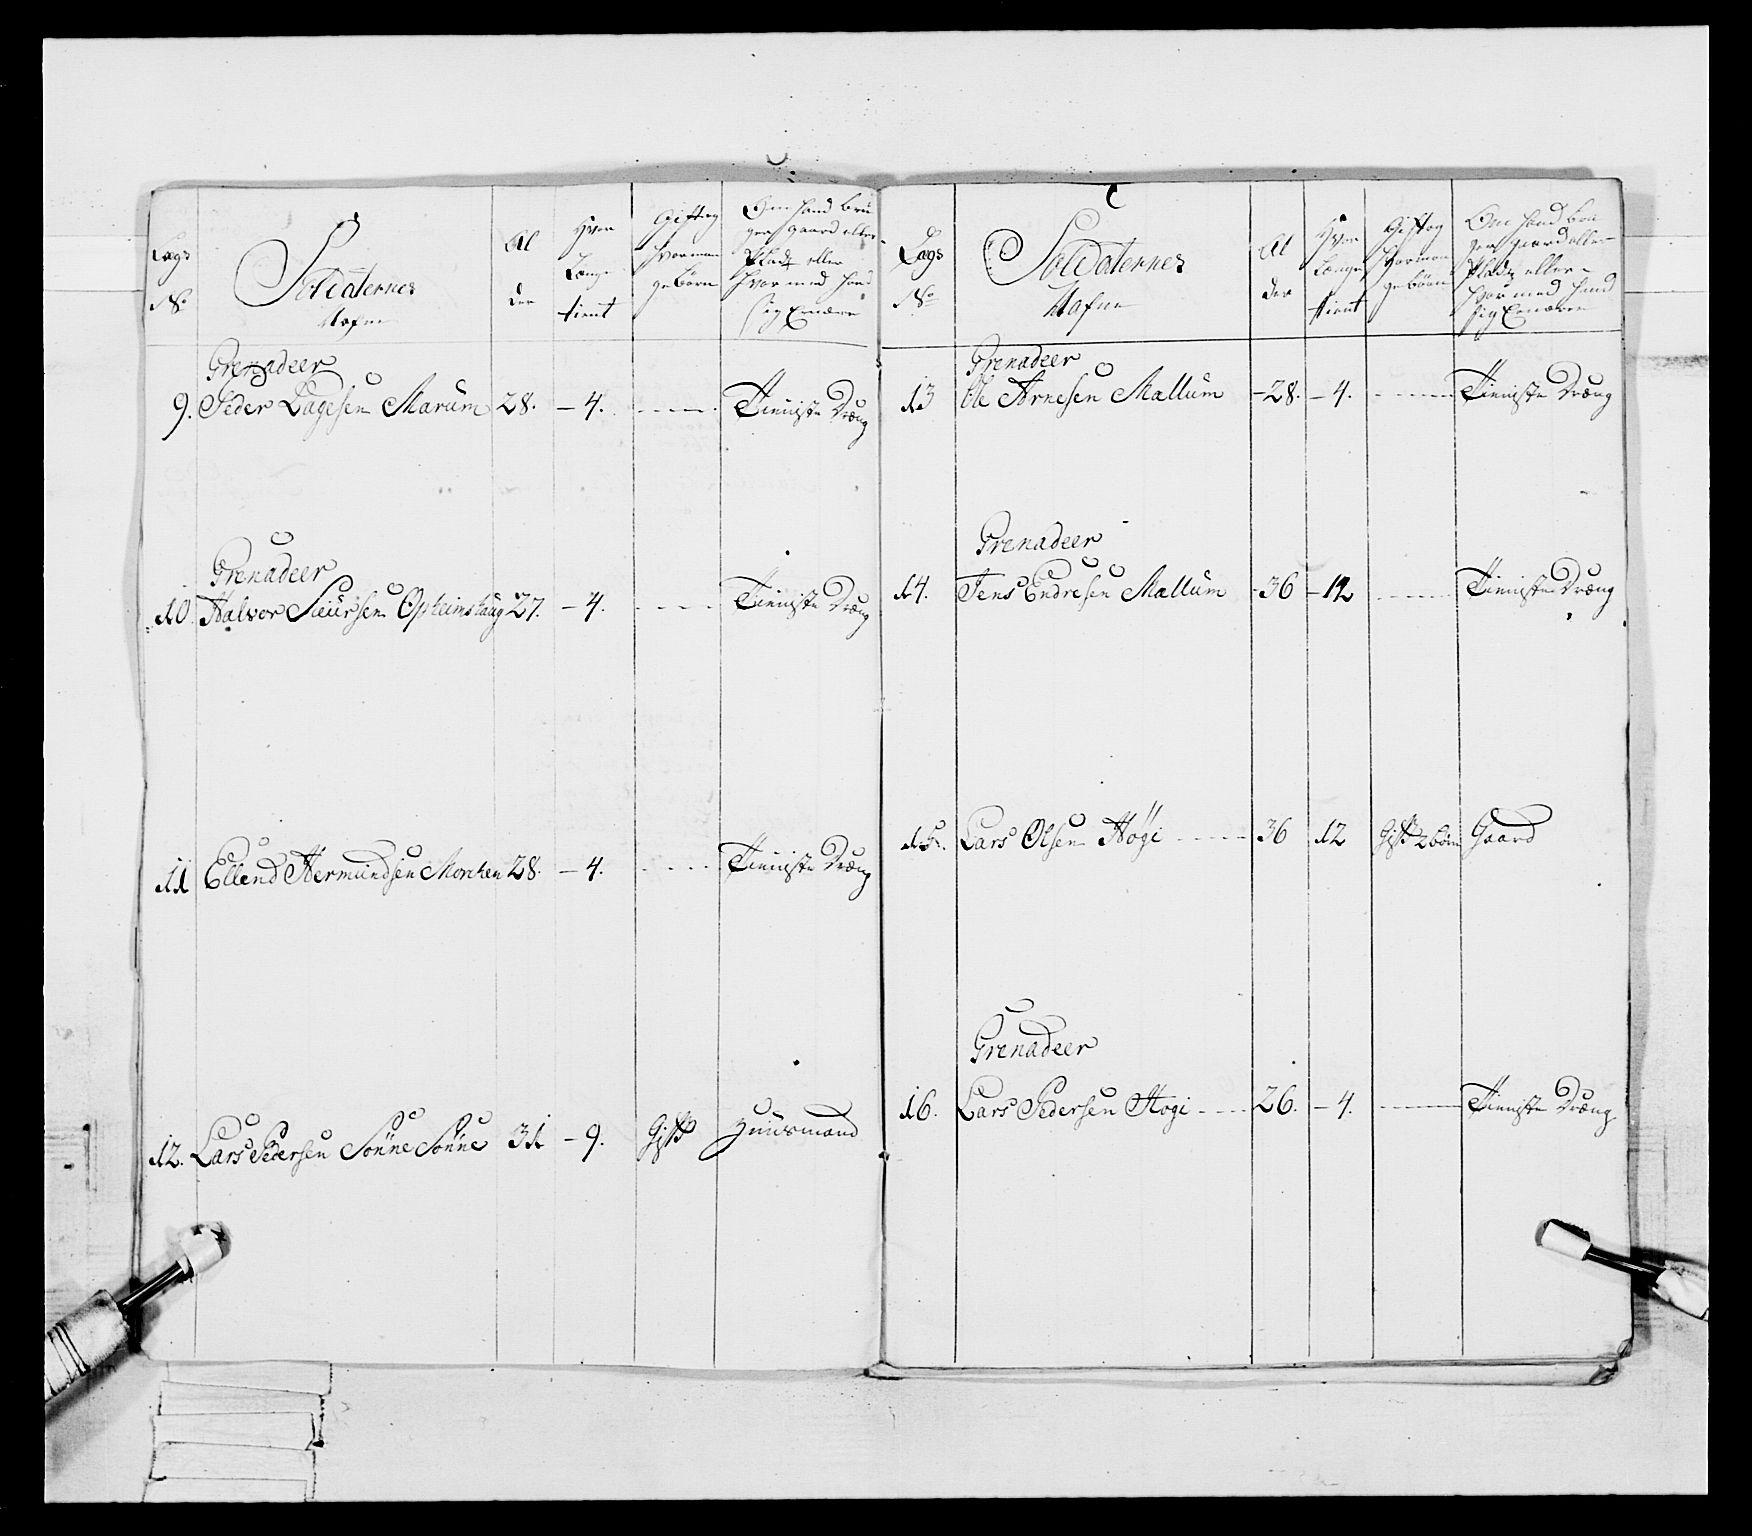 Lægs
No
Soldaternes
Nafne
Al
der
Hvor
Længe
tient
Gift og
hvor man
ge børn
Om hand bru
ger gaard eller
Plads eller
hvor med hand
sig Ernærer
Grenadeer
9. Peder Lagesen Marum 28. – 4. Tieniste Dræng
Grenadeer
10 Halvor Siursen Opheimshaug 27. – 4. Tieniste Dræng
11 Ellend Hermundsen Moneken 28. – 4. Tieniste Dræng
12. Lars Pedersen Sønnesønne 31 – 9. Gift Huusmand
Lægs
No
Soldaternes
Nafne
Al
der
Hvor
Længe
tient
Gift og
hvor man
ge børn
Om hand bru
ger gaard eller
Plads eller
hvor med hand
sig Ernærer
Grenadeer
13 Ole Arnesen Mallum – 28. – 4. Tieniste Dræng
Grenadeer
14. Jens Endresen Mallum – 36 – 12 Tieniste Dræng
15. Lars Olsen Høgi 36 12 Gift 2 børn Gaard
Grenadeer
16. Lars Pedersen Hogi 26. – 4. Tieniste Dræng